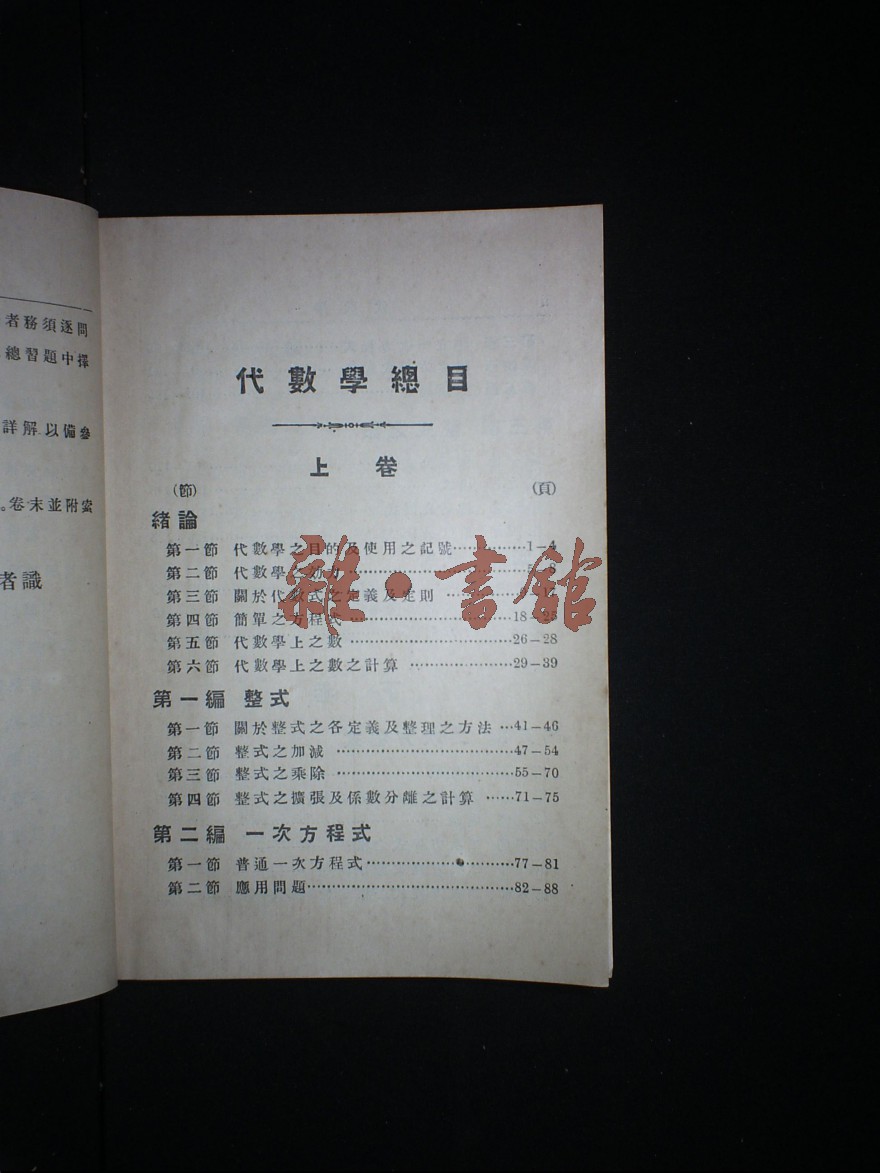 者務須逐問
總習題中擇
詳解以備參
。卷末並附索
者識
代數學總目
上 卷
(節) (頁)
緒論
第一節 代數學之目的及使用之記號……………1－4
第二節 代數學之効力
第三節 關於代數式之定義及定則
第四節 簡單之方程式……………18－25
第五節 代數學上之數……………26－28
第六節 代數學上之數之計算……………29－39
第一編 整式
第一節 關於整式之各定義及整理之方法…41－46
第二節 整式之加減……………47－54
第三節 整式之乘除……………55－70
第四節 整式之擴張及係數分離之計算……71－75
第二編 一次方程式
第一節 普通一次方程式……………77－81
第二節 應用問題……………82－88
雜·書館